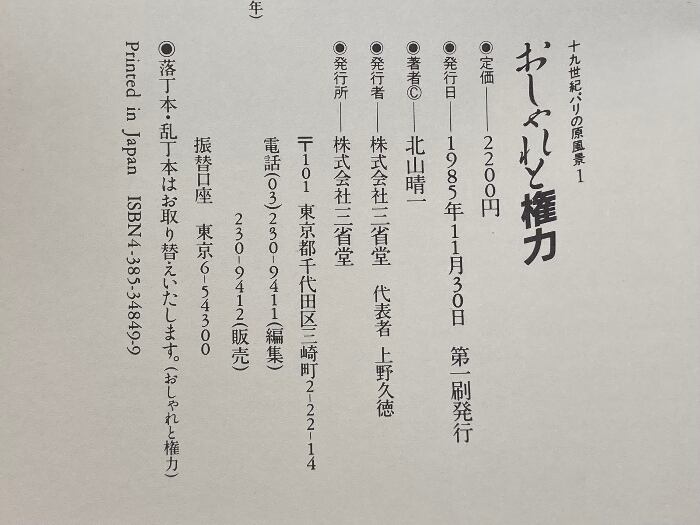 年)
十九世紀パリの原風景1
おしゃれと権力
◉定価——2200円
◉発行日——1985年11月30日 第一刷発行
◉著者©——北山晴一
◉発行者——株式会社三省堂 代表者 上野久徳
◉発行所——株式会社三省堂
〒101 東京都千代田区三崎町2-22-14
電話(03)230-9411(編集)
230-9412(販売)
振替口座 東京6-54300
◉落丁本・乱丁本はお取り替えいたします。(おしゃれと権力)
Printed in Japan ISBN4-385-34849-9